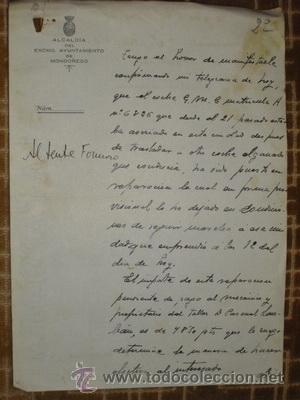 22
ALCALDÍA
DEL
EXCMO. AYUNTAMIENTO
DE
MONDOÑEDO
Núm.
Tengo el honor de manifestarle
confirmando mi telegrama de hoy,
que el coche G.M.C. matricula A
nº 6826 que desde el 21 pasado
en esta ciudad despues
de trasladar a otro coche
que conducia, ha sido puesto en
reparacion la cual en forma pro
visional le ha dejado en condicio
nes de seguir marcha a esa
dad que emprendio a las 12 del
dia de hoy.
El importe de esta reparacion
pendiente de pago al mecanico y
propietario del Taller D. Manuel
es de 48'70 pts que le ruego
determine la manera de hacer
efectivo al interesado
www.todocoleccion.net